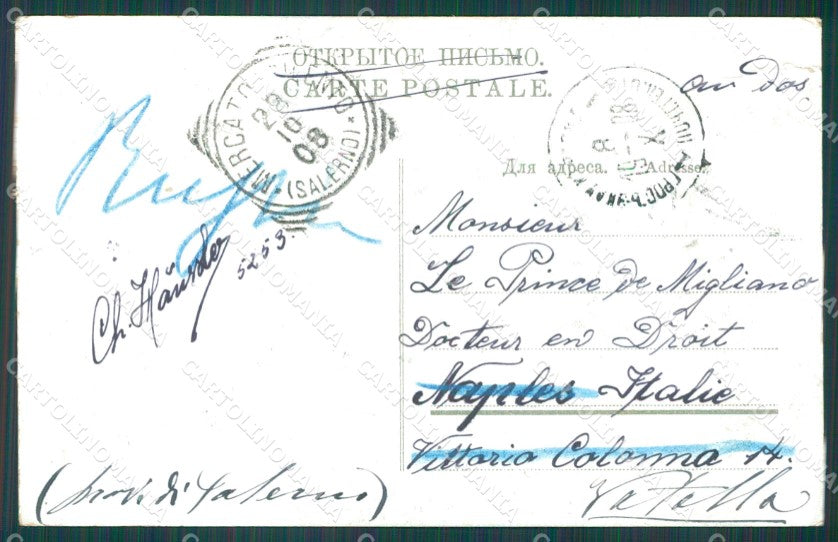 ОТКРЫТОЕ ПИСЬМО.
CARTE POSTALE.
au dos
MERCATO (SALERNO)
28 10 08
Для адреса. — Adresse.
Monsieur
Le Prince de Migliano
Docteur en Droit
Naples Italie
Vittorio Colonna 14.
Ch. Häusler
5253.
(prov. di Salerno)